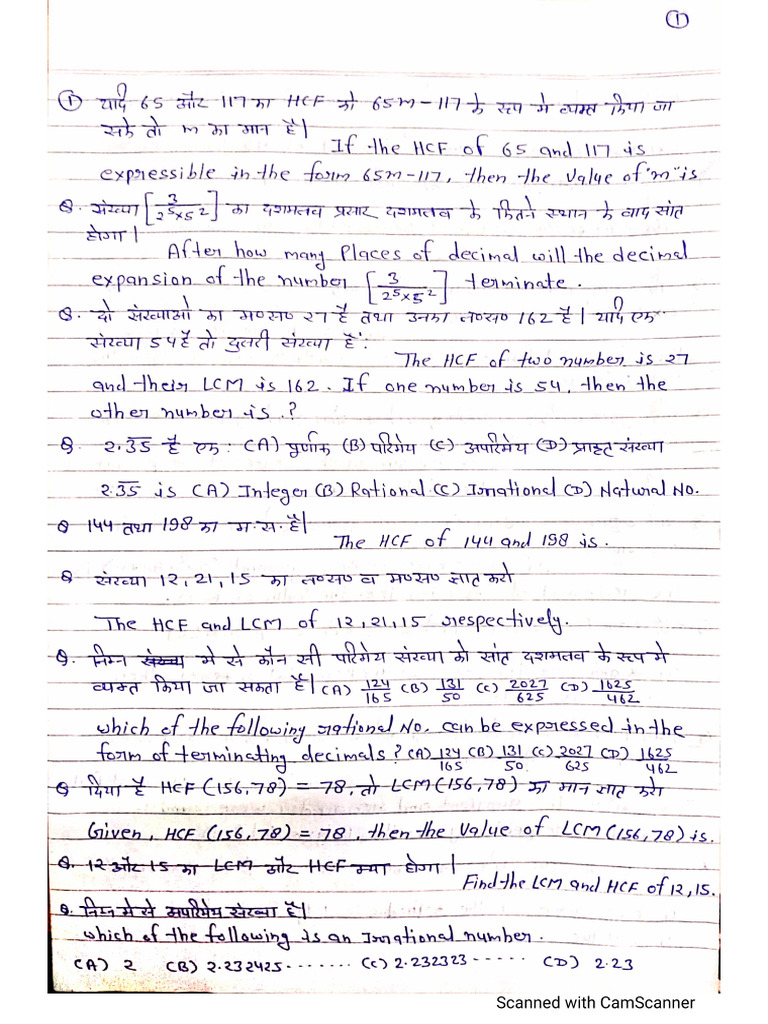 ①
① यदि 65 और 117 का HCF को 65m-117 के रूप मे व्यक्त किया जा
सके तो m का मान है।
If the HCF of 65 and 117 is
expressible in the form 65m-117, then the value of "m" is
Q. संख्या [3/2⁵×5²] का दशमलव प्रसार दशमलव के कितने स्थान के बाद सांत
होगा।
After how many Places of decimal will the decimal
expansion of the number [3/2⁵×5²] terminate.
Q. दो संख्याओ का म०स० 27 है तथा उनका ल०स० 162 है। यदि एक
संख्या 54 है तो दुसरी संख्या है:
The HCF of two number is 27
and their LCM is 162. If one number is 54, then the
other number is.?
Q. 2.3̅5̅ है एक: (A) पुर्णांक (B) परिमेय (C) अपरिमेय (D) प्राकृत संख्या
2.3̅5̅ is (A) Integer (B) Rational (C) Irrational (D) Natural No.
Q 144 तथा 198 का म.स. है।
The HCF of 144 and 198 is.
Q संख्या 12, 21, 15 का ल०स० व म०स० ज्ञात करो
The HCF and LCM of 12, 21, 15 respectively.
Q. निम्न मे से कौन सी परिमेय संख्या को सांत दशमलव के रूप मे
व्यक्त किया जा सकता है। (A) 124/165 (B) 131/50 (C) 2027/625 (D) 1625/462
which of the following rational No. can be expressed in the
form of terminating decimals? (A) 124/165 (B) 131/50. (C) 2027/625 (D) 1625/462
Q दिया है HCF (156,78) = 78, तो LCM (156,78) का मान ज्ञात करो
Given, HCF (156,78) = 78, then the Value of LCM (156,78) is.
Q. 12 और 15 का LCM और HCF क्या होगा।
Find the LCM and HCF of 12, 15.
Q. निम्न मे से अपरिमेय संख्या है।
which of the following is an Irrational number.
(A) 2 (B) 2.232425....... (C) 2.232323..... (D) 2.23
Scanned with CamScanner